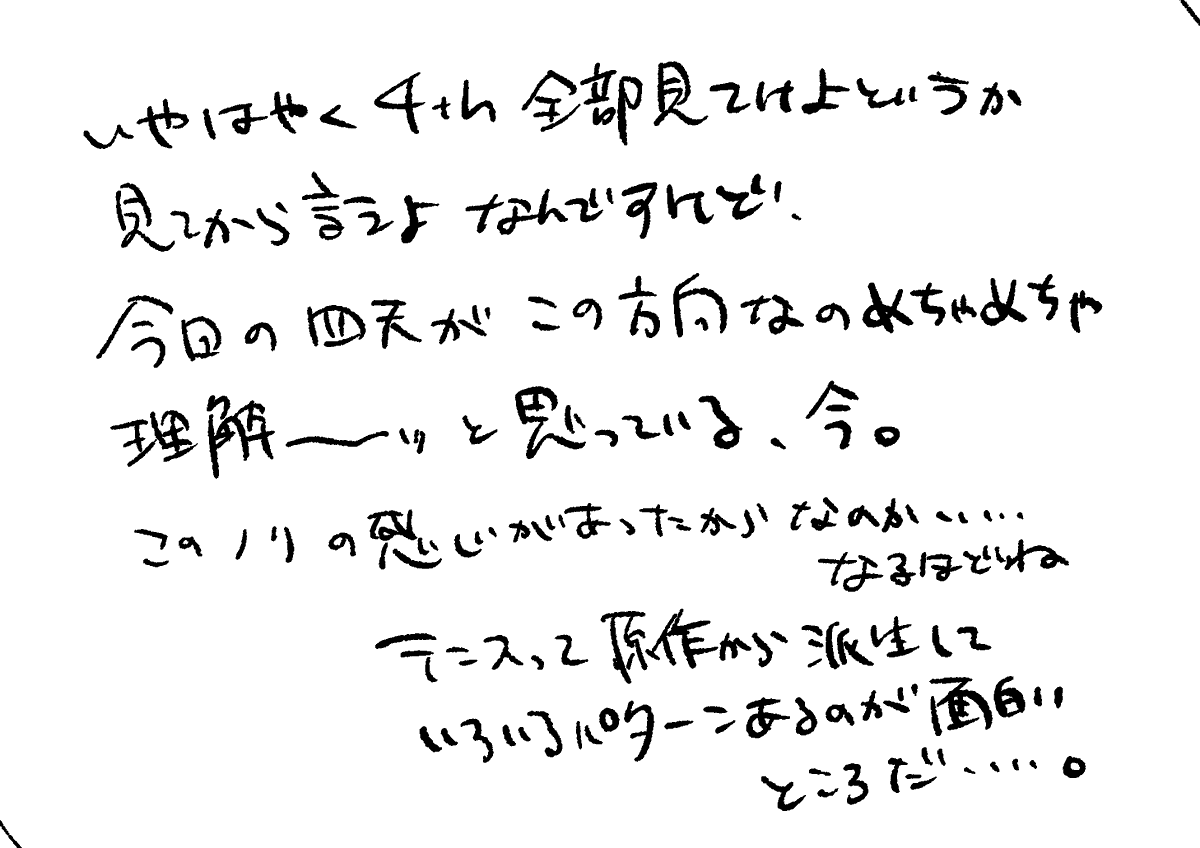 いやはやく 4th 全部見てけよというか
見てから言えよ なんですけれど、
今回の四天がこの方向なのめちゃめちゃ
理解〜〜ッ と思っている、今。
このノリの感じがあったからなのか.....
なるほどね
テニスって原作から派生して
いろいろパターンあるのが面白い
ところだ.....。